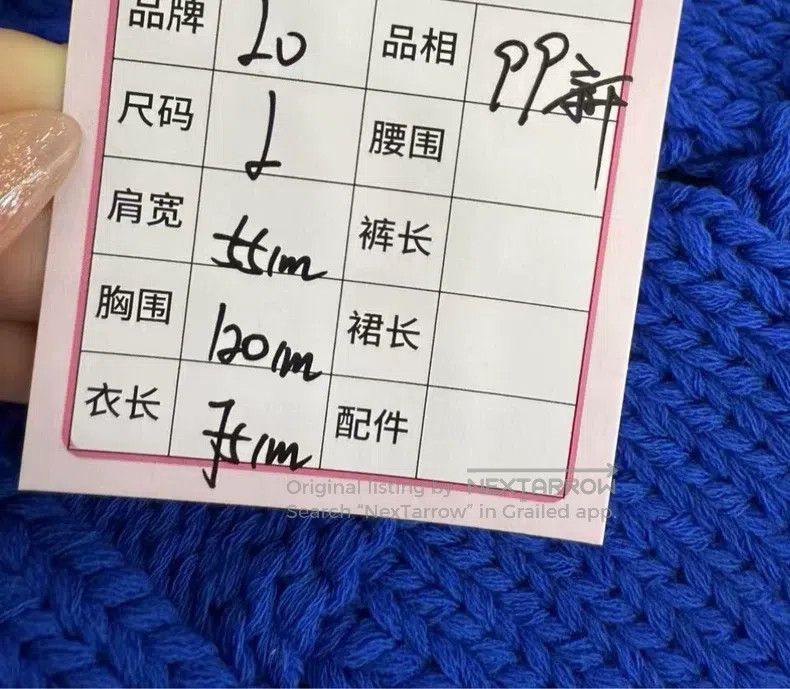 品牌 Lo 品相 99新
尺码 L 腰围
肩宽 55cm 裤长
胸围 120cm 裙长
衣长 75cm 配件
Original listing by NEXTARROW
Search "NexTarrow" in Grailed app